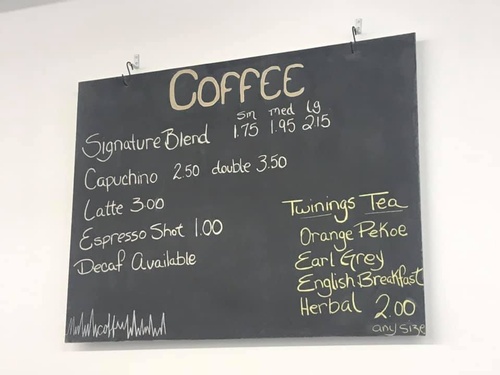 COFFEE
sm med lg
Signature Blend 1.75 1.95 2.15
Capuchino 2.50 double 3.50
Latte 3.00
Espresso Shot 1.00
Decaf Available
Twinings Tea
Orange Pekoe
Earl Grey
English Breakfast
Herbal 2.00
any size
coffee